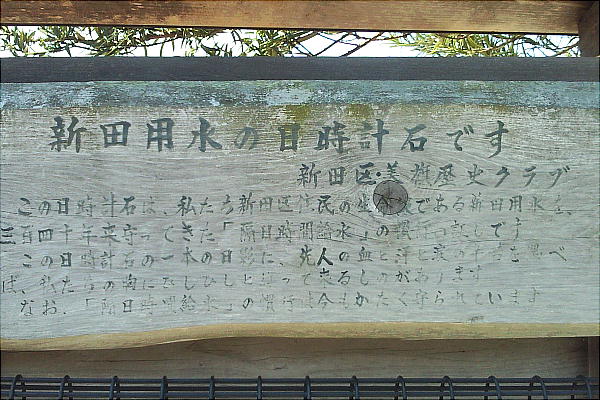 新田用水の日時計石です
新田区・美旗歴史クラブ
この日時計石は、私たち新田区住民の生 である新田用水を、
三百四十年来守ってきた「隔日時間給水」の です
この日時計石の一本の日影に、先人の血と汗と涙の を思べ
ば、私たちの胸にひしひしと迫って来るものがあります
なお、「隔日時間給水」の慣行は今もかたく守られています